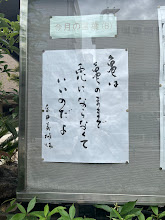 今月の言葉
亀は
亀のままで
兎にならなくて
いいのだよ